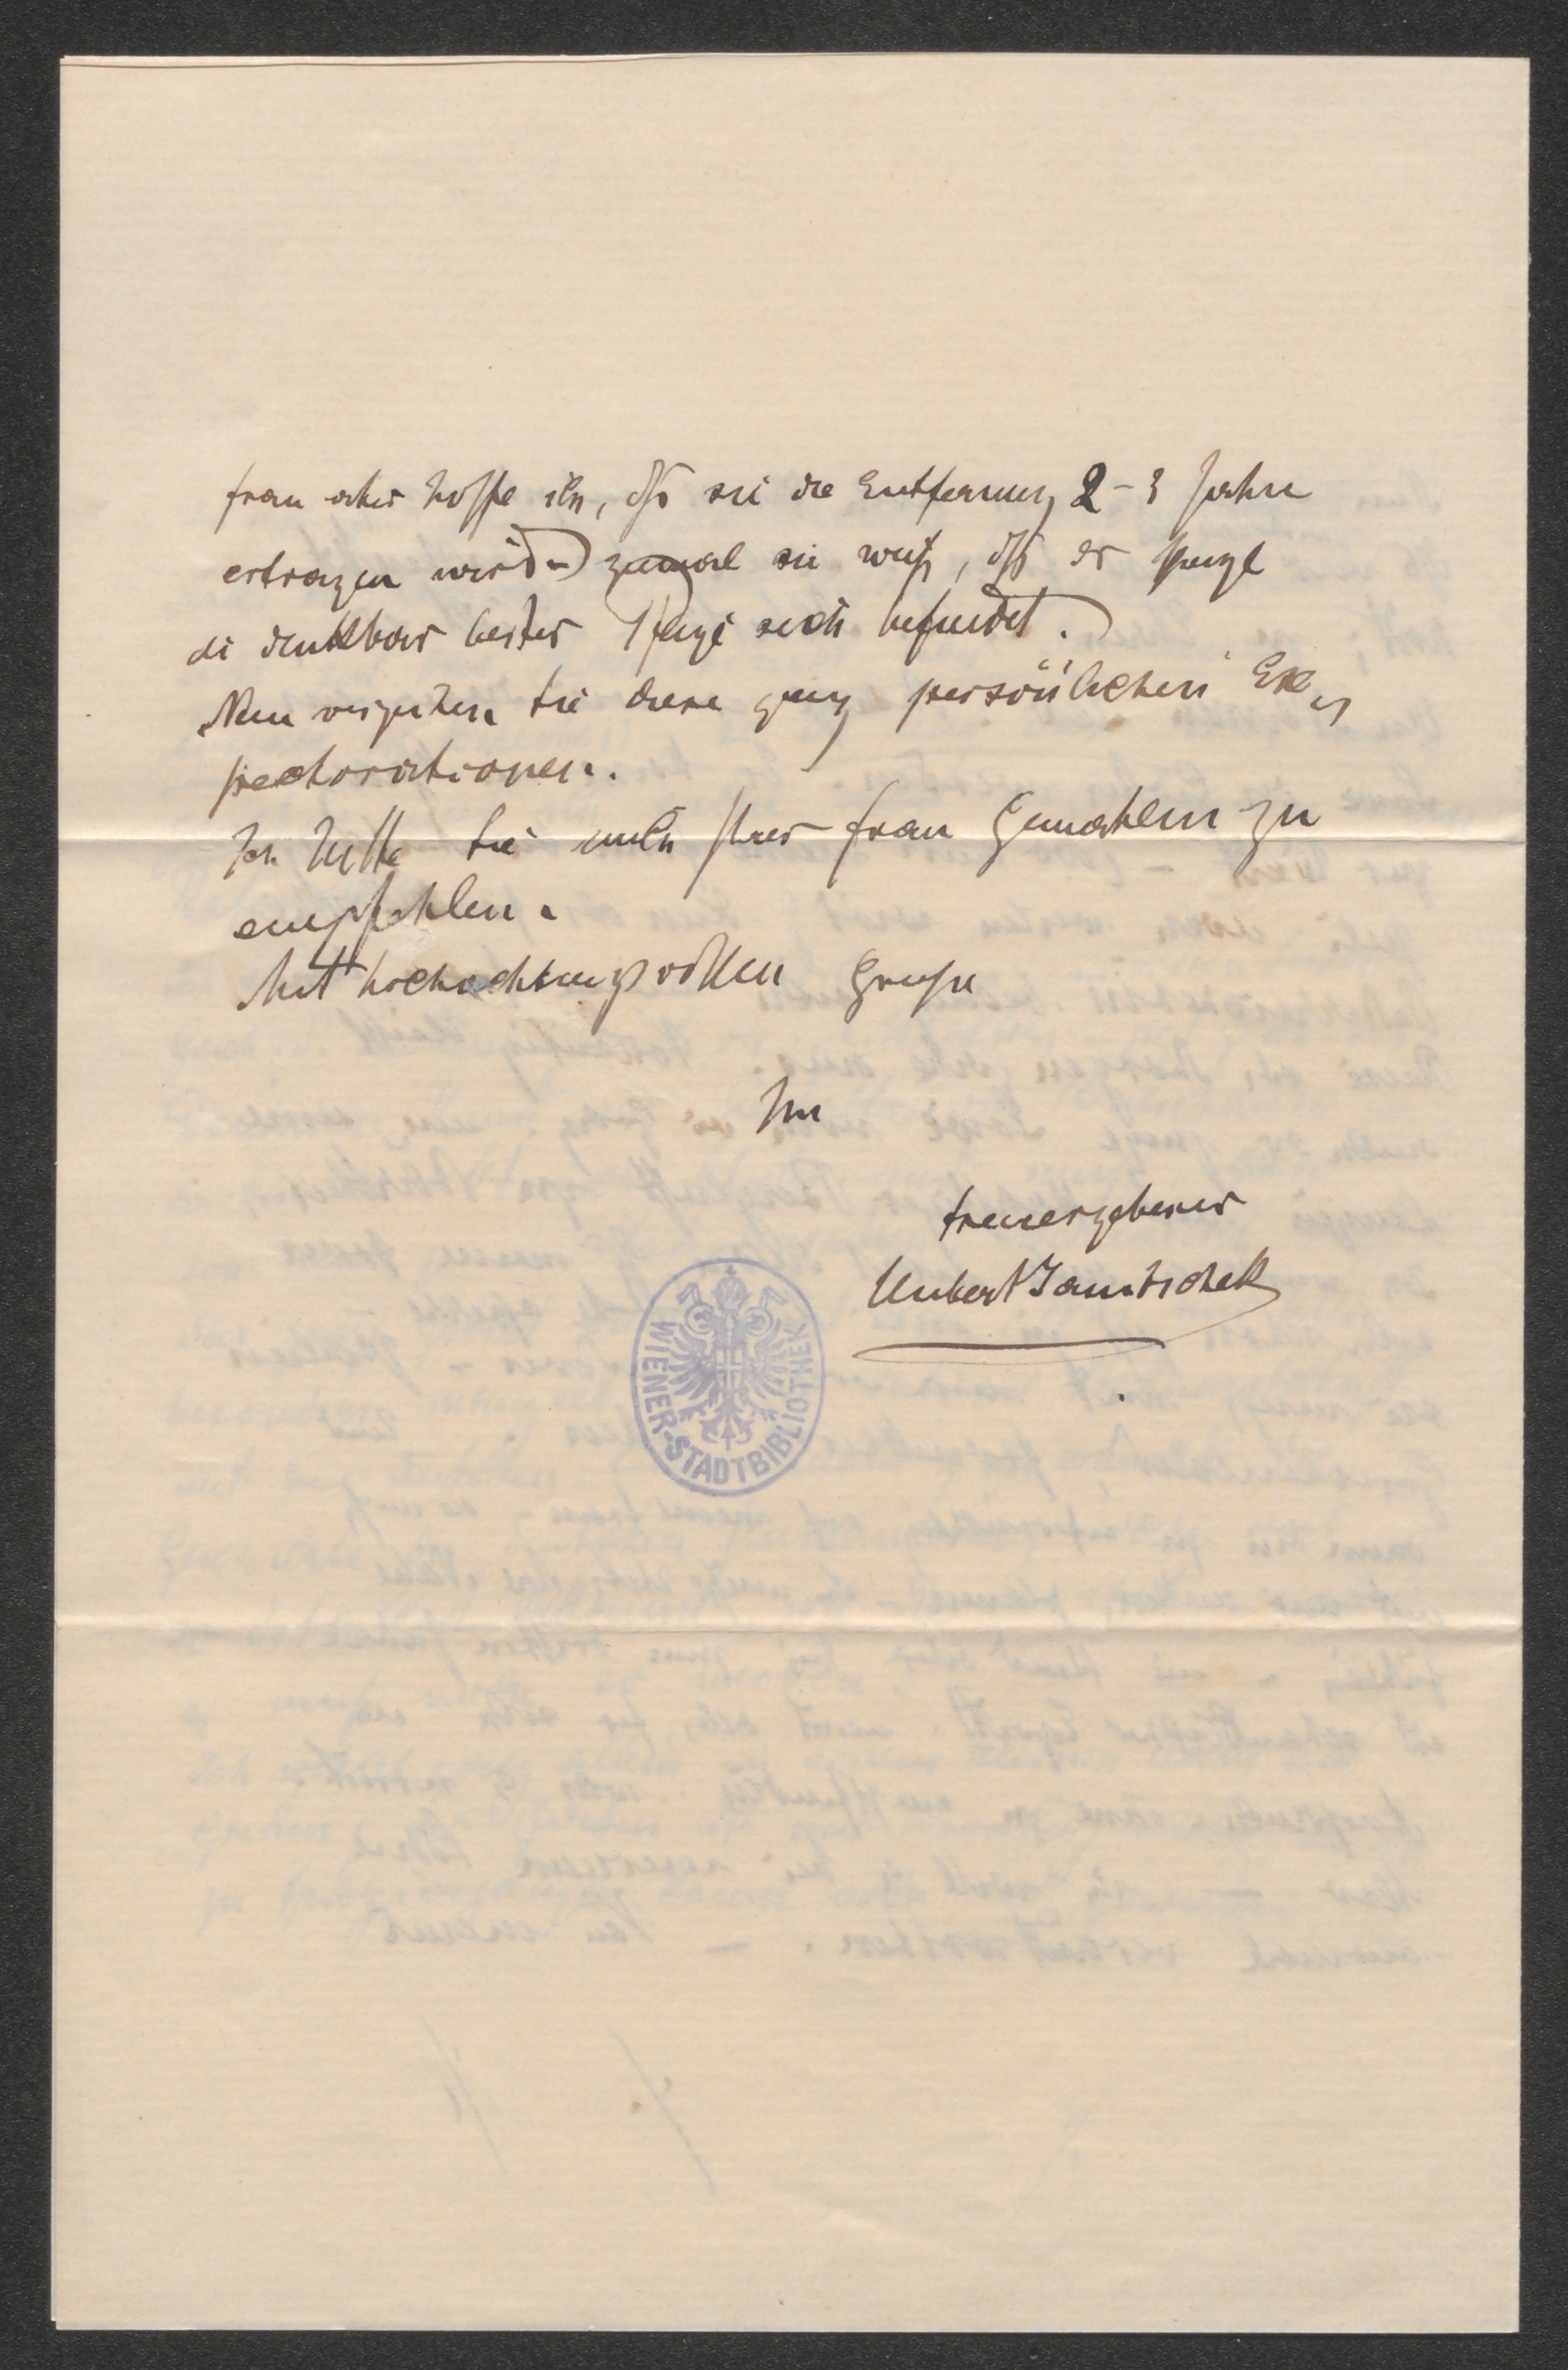 frau aber hoffe ich, dß sie die Entfernung 2-3 Jahre
ertragen wird – zumal sie weiß, dß er
in denkbar bester Pflege sich befindet.
Nun verzeihen Sie diese ganz persönlichen Ex„
pectorationen.
Ich bitte Sie mich Ihrer Frau Gemahlin zu
empfehlen.
Mit hochachtungsvollen Gruße
Ihr
treuergebener
Hubert Janitschek
WIENER-STADTBIBLIOTHEK